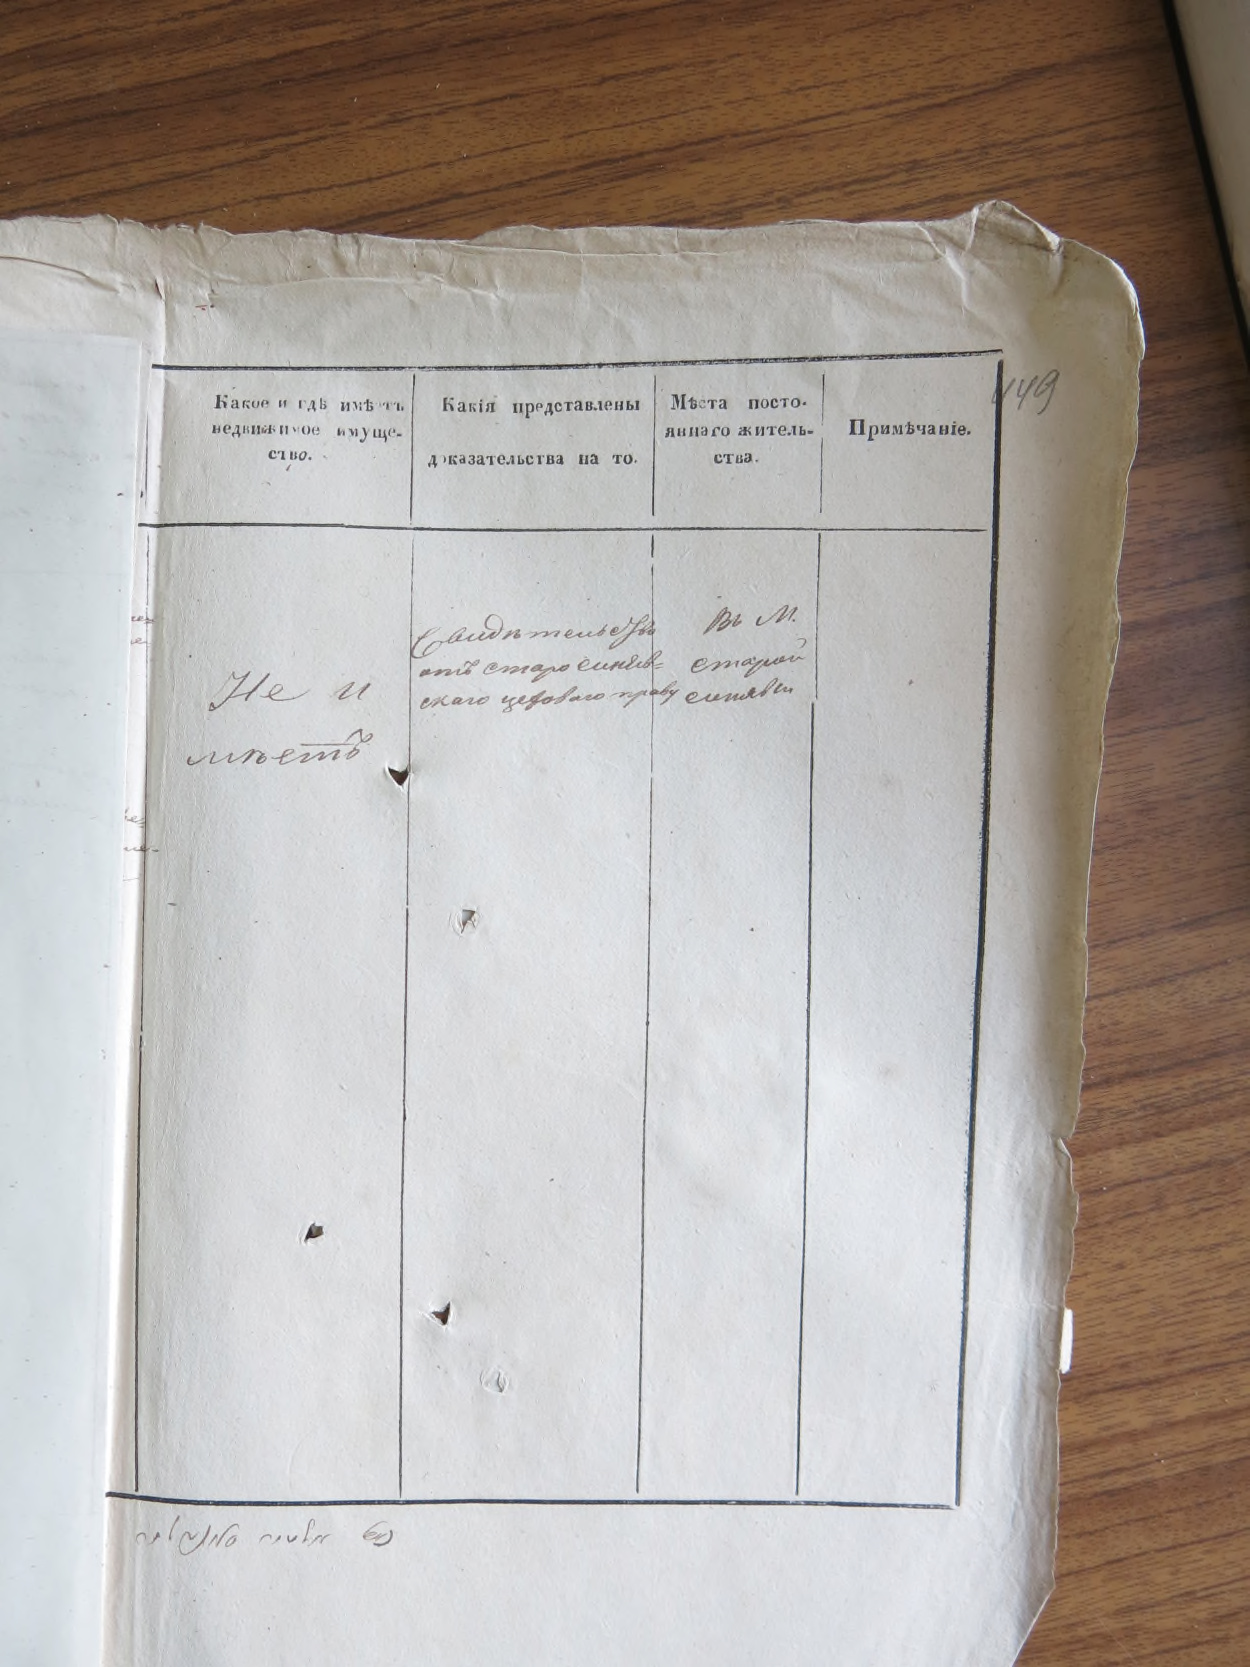 449
Какое и гдѣ имѣетъ
недвижимое имуще-
ство.
Какія представлены
доказательства на то.
Мѣста посто-
яннаго житель-
ства.
Примѣчаніе.
Не и
мѣетъ
Свидѣтельство
отъ старосиняв=
скаго цеховаго праву
Въ М.
старой
синявы